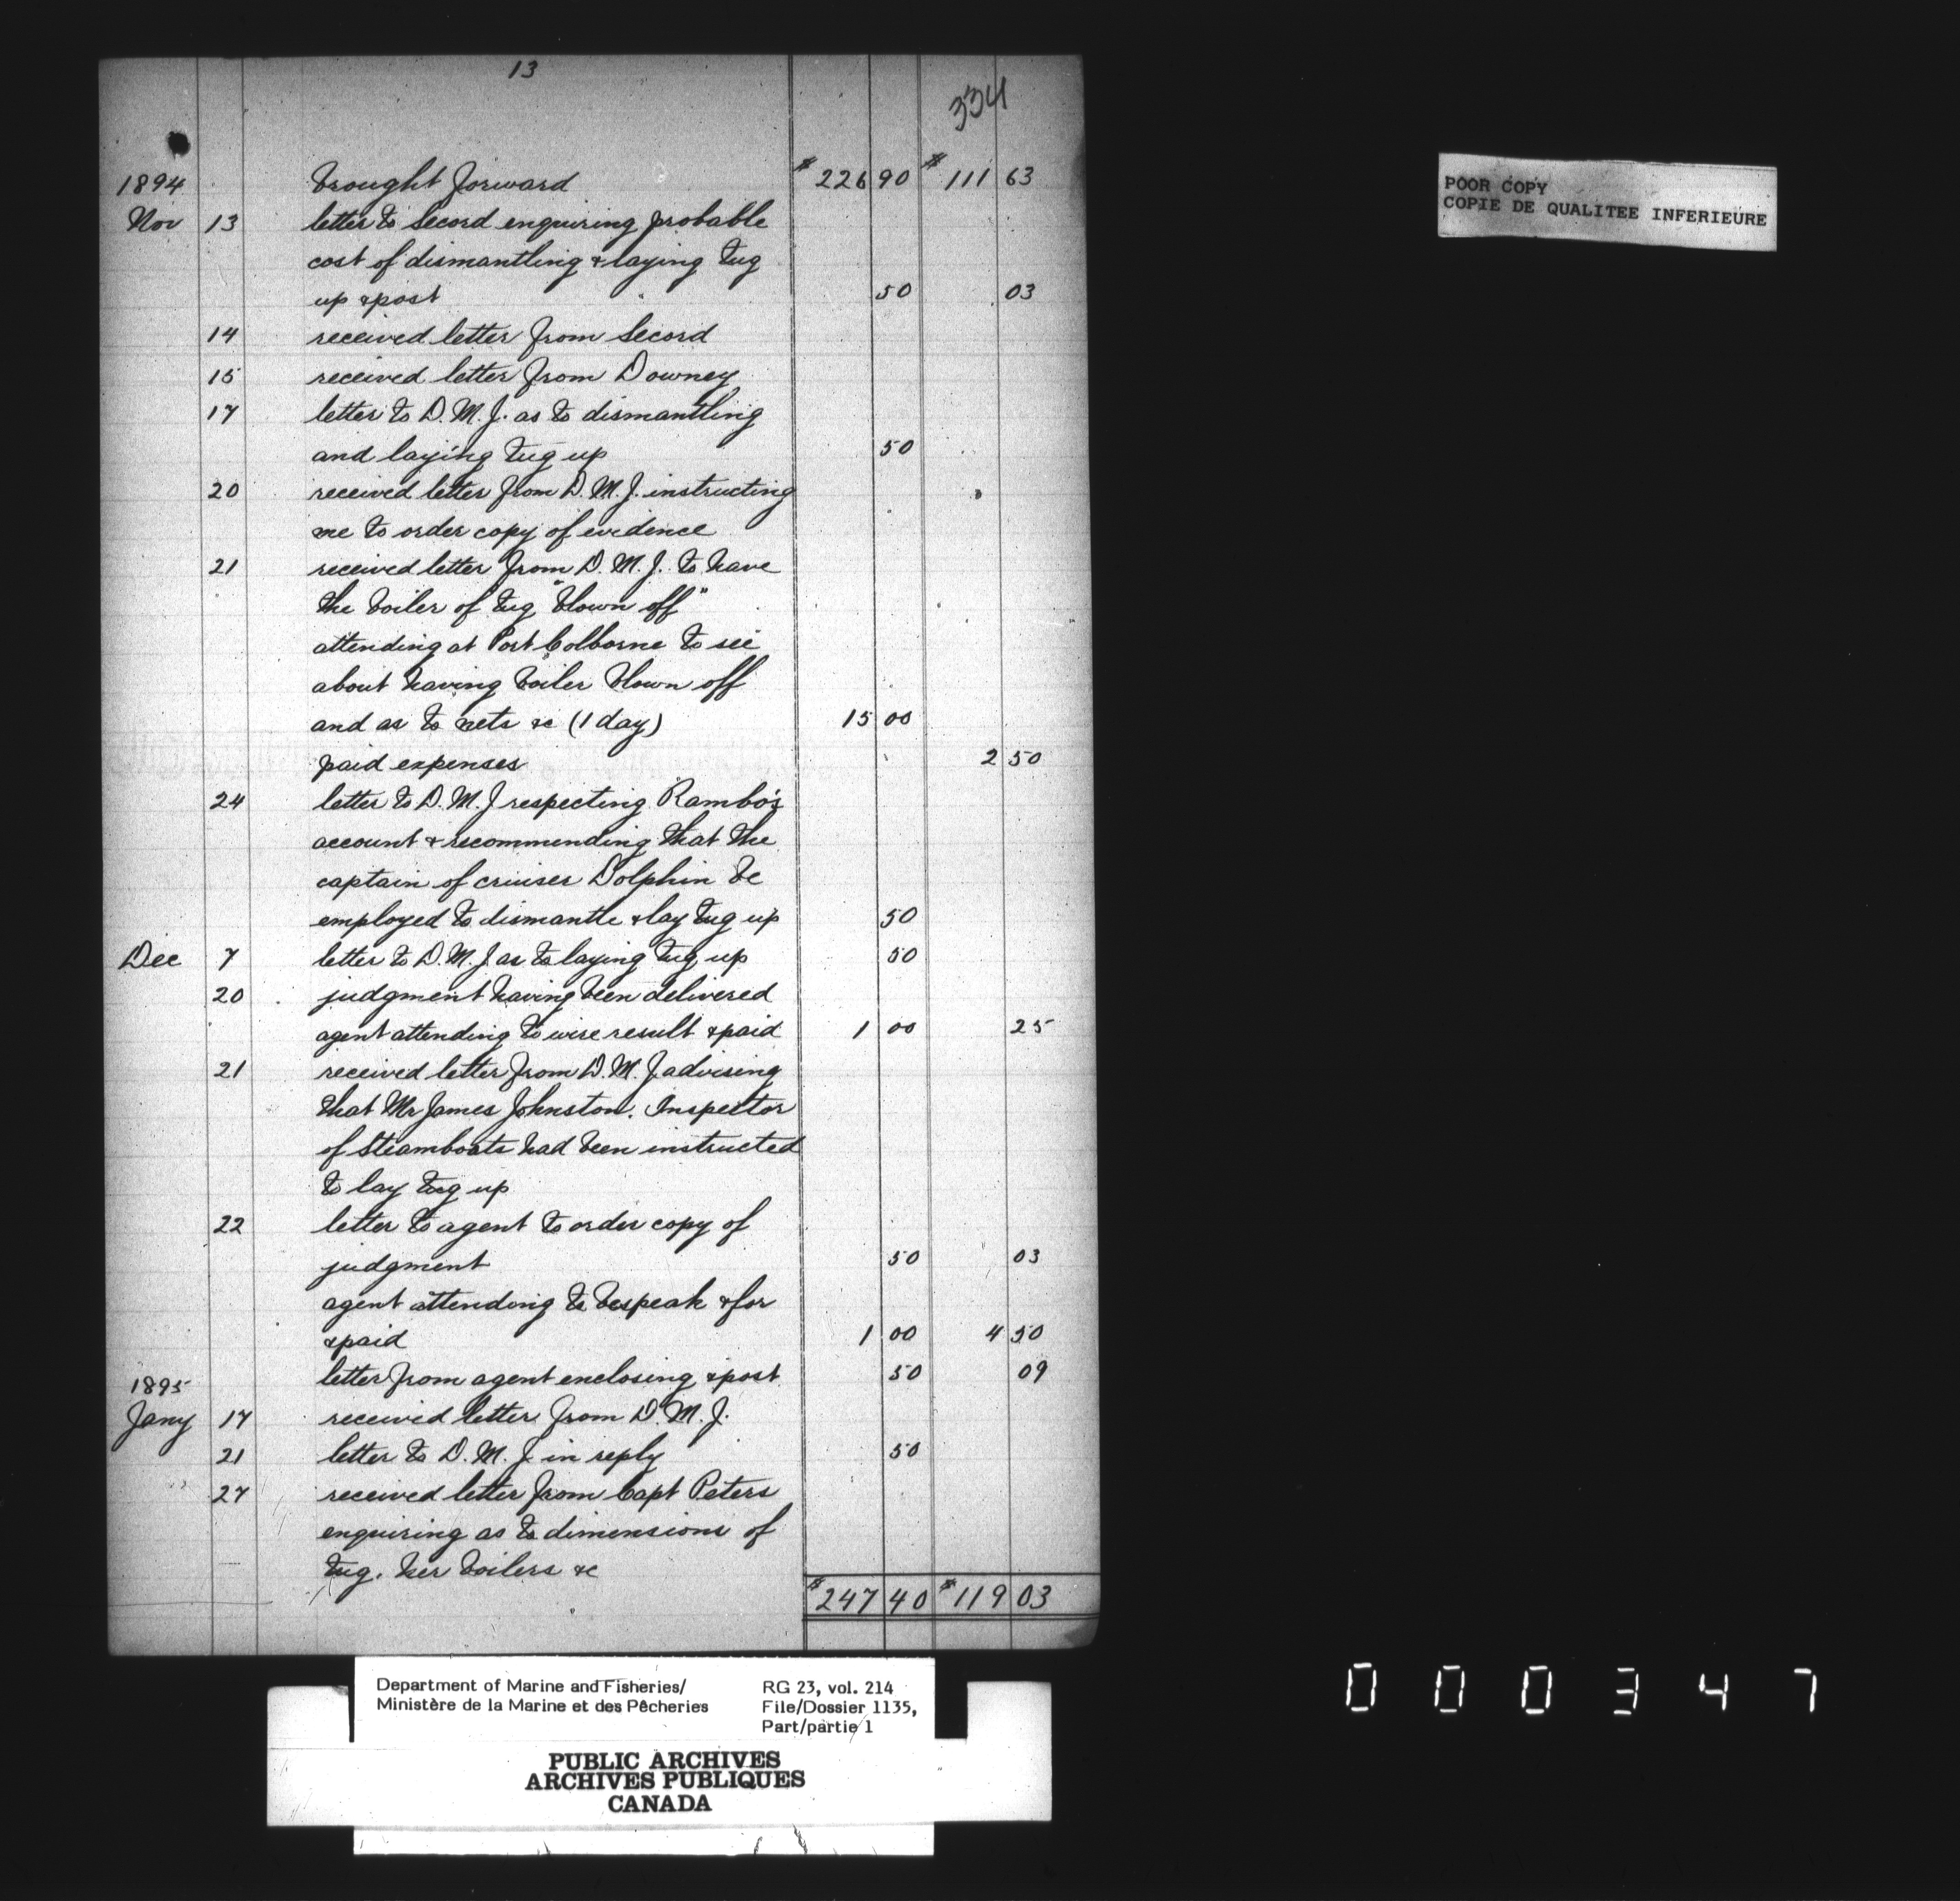 13
334
1894 brought forward $226 90 $111 63
Nov 13 letter to Secord enquiring probable
cost of dismantling & laying tug
up & post 50 03
14 received letter from Secord
15 received letter from Downey
17 letter to D. M. J. as to dismantling
and laying tug up 50
20 received letter from D. M. J. instructing
me to order copy of evidence
21 received letter from D. M. J. to have
the boiler of tug "blown off"
attending at Port Colborne to see
about having boiler blown off
and as to nets &c (1 day) 15 00
paid expenses 2 50
24 letter to D. M. J respecting Rambo's
account & recommending that the
captain of cruiser Dolphin be
employed to dismantle & lay tug up 50
Dec 7 letter to D. M. J as to laying tug up 50
20 judgment having been delivered
agent attending to wire result & paid 1 00 25
21 received letter from D. M. J advising
that Mr James Johnston. Inspector
of Steamboats had been instructed
to lay tug up
22 letter to agent to order copy of
judgment 50 03
agent attending to bespeak & for
& paid 1 00 4 50
letter from agent enclosing & post 50 09
1895
Jany 17 received letter from D. M. J.
21 letter to D. M. J in reply 50
27 received letter from Capt Peters
enquiring as to dimensions of
tug. her boilers &c
$247 40 $119 03
POOR COPY
COPIE DE QUALITEE INFERIEURE
Department of Marine and Fisheries/
Ministère de la Marine et des Pêcheries
RG 23, vol. 214
File/Dossier 1135,
Part/partie 1
PUBLIC ARCHIVES
ARCHIVES PUBLIQUES
CANADA
000347